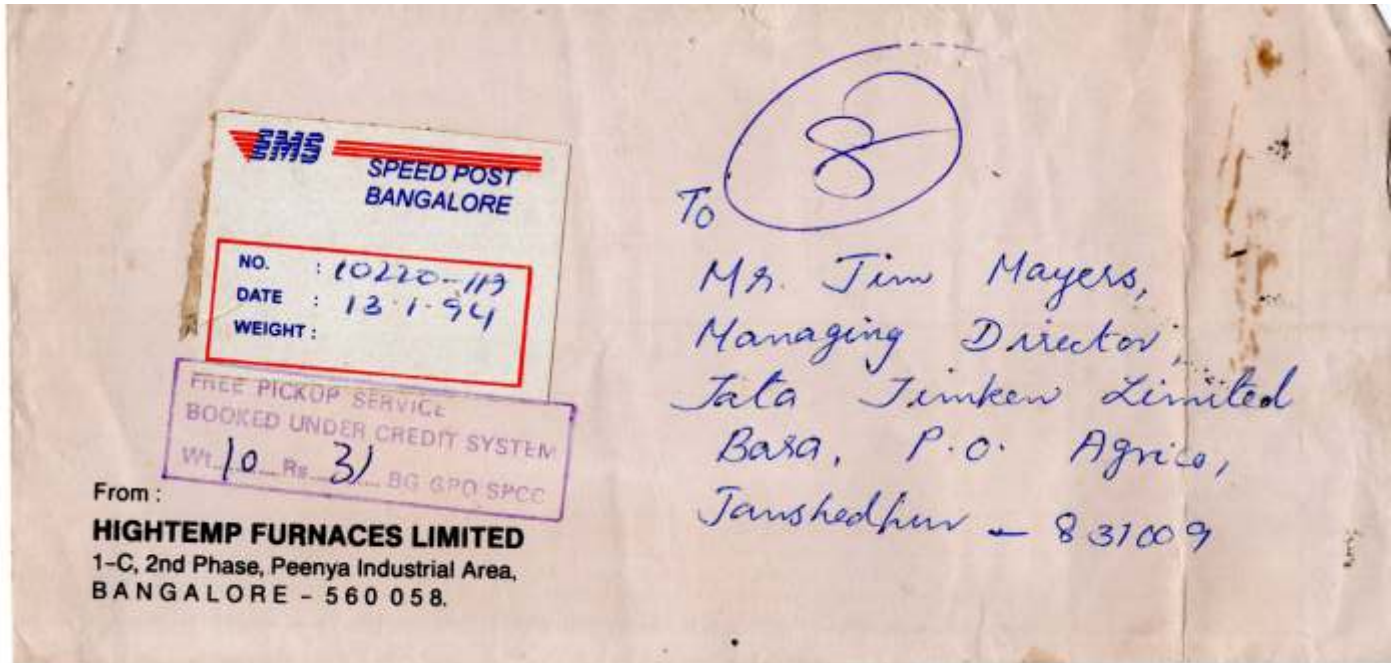 EMS
SPEED POST
BANGALORE
NO. : 10220-119
DATE : 13.1.94
WEIGHT :
FREE PICKUP SERVICE
BOOKED UNDER CREDIT SYSTEM
Wt. 10 Rs 31 BG GPO SPCC
From :
HIGHTEMP FURNACES LIMITED
1-C, 2nd Phase, Peenya Industrial Area,
BANGALORE - 560 058.
8
To
Mr. Jim Mayers,
Managing Director,
Tata Timken Limited
Bara, P.O. Agrico,
Jamshedpur - 831009